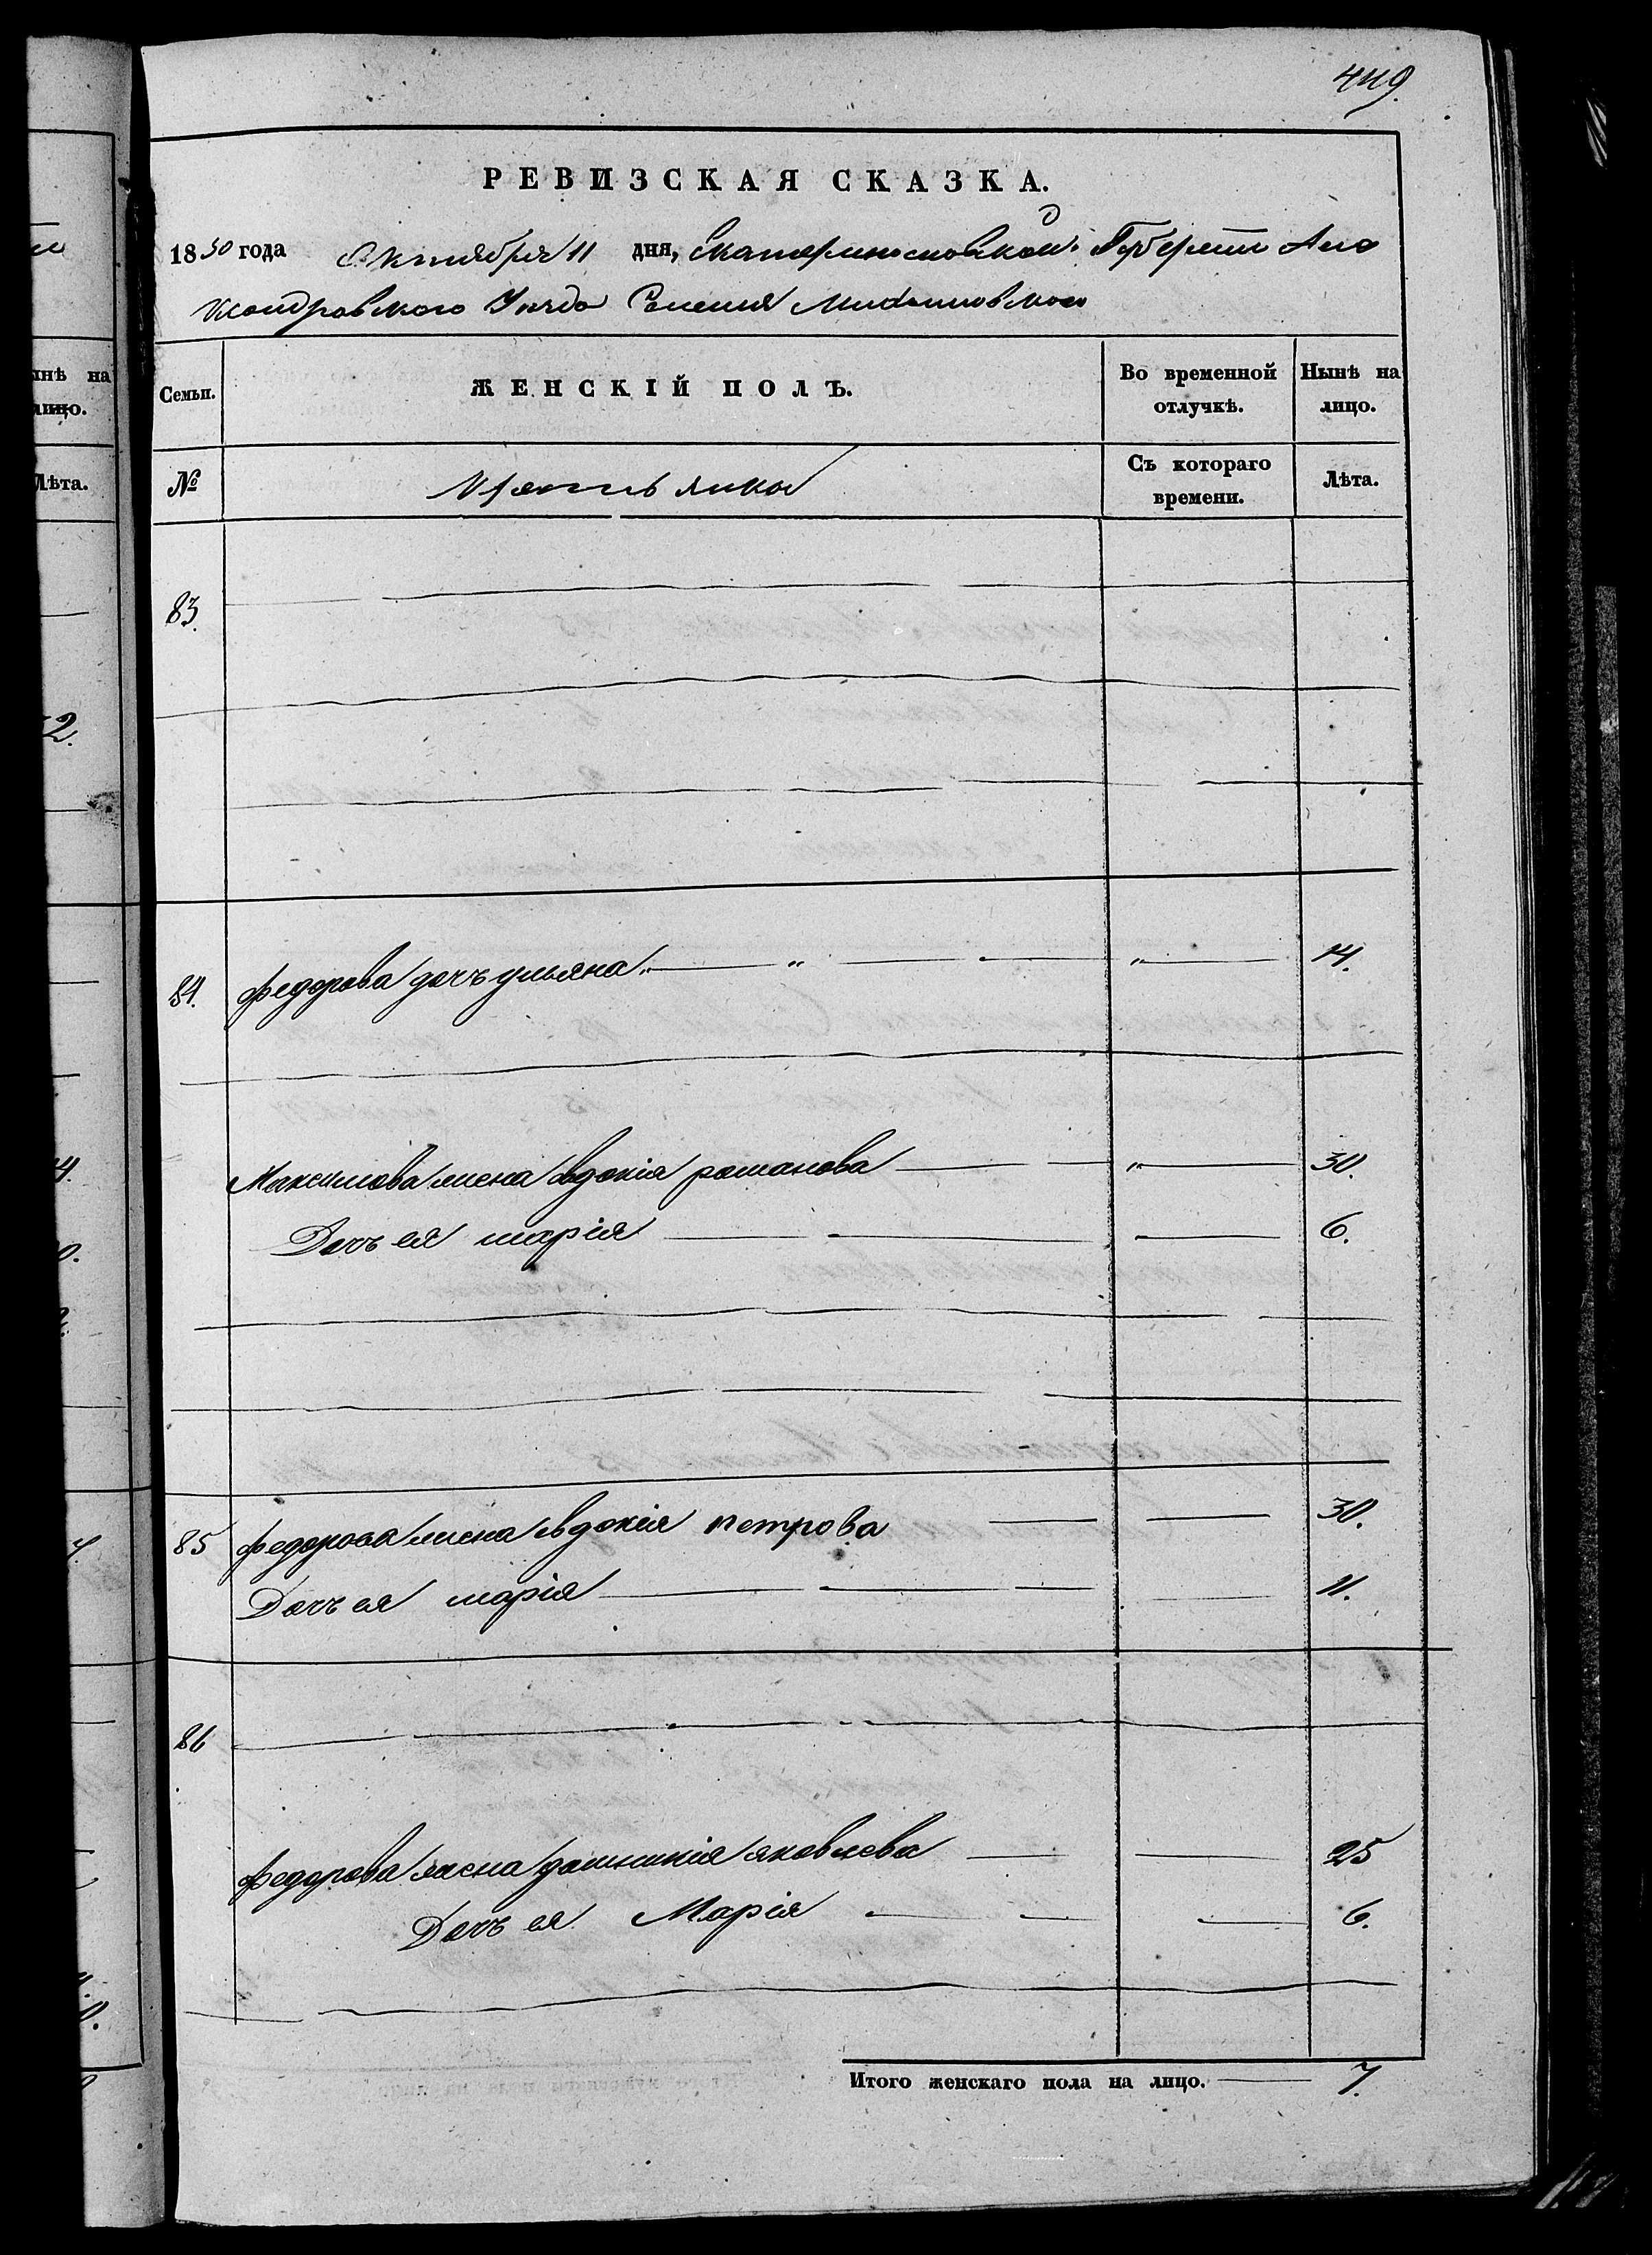 449.
РЕВИЗСКАЯ СКАЗКА.
1850 года Октября 11 дня, Екатеринославской Губернии Алео
ксандровского Уезда Селения Михайловского
Семьи.
ЖЕНСКІЙ ПОЛЪ.
Во временной отлучкѣ.
Нынѣ на лицо.
№
Крестьянки
Съ котораго времени.
Лѣта.
83.
84. Федорова дочъ ульяна " — " — " — 14.
Максимова жена евдокія романова — " — 30.
Дочъ ея марія — — 6.
85 Федорова жена евдокія петрова — — 30.
Дочъ ея марія — — 11.
86
Федорова жена домникія яковлева — — 25
Дочъ ея Марія — — 6.
Итого женскаго пола на лицо. — 7.
ынѣ на
лицо.
Лѣта.
2.
4.
0.